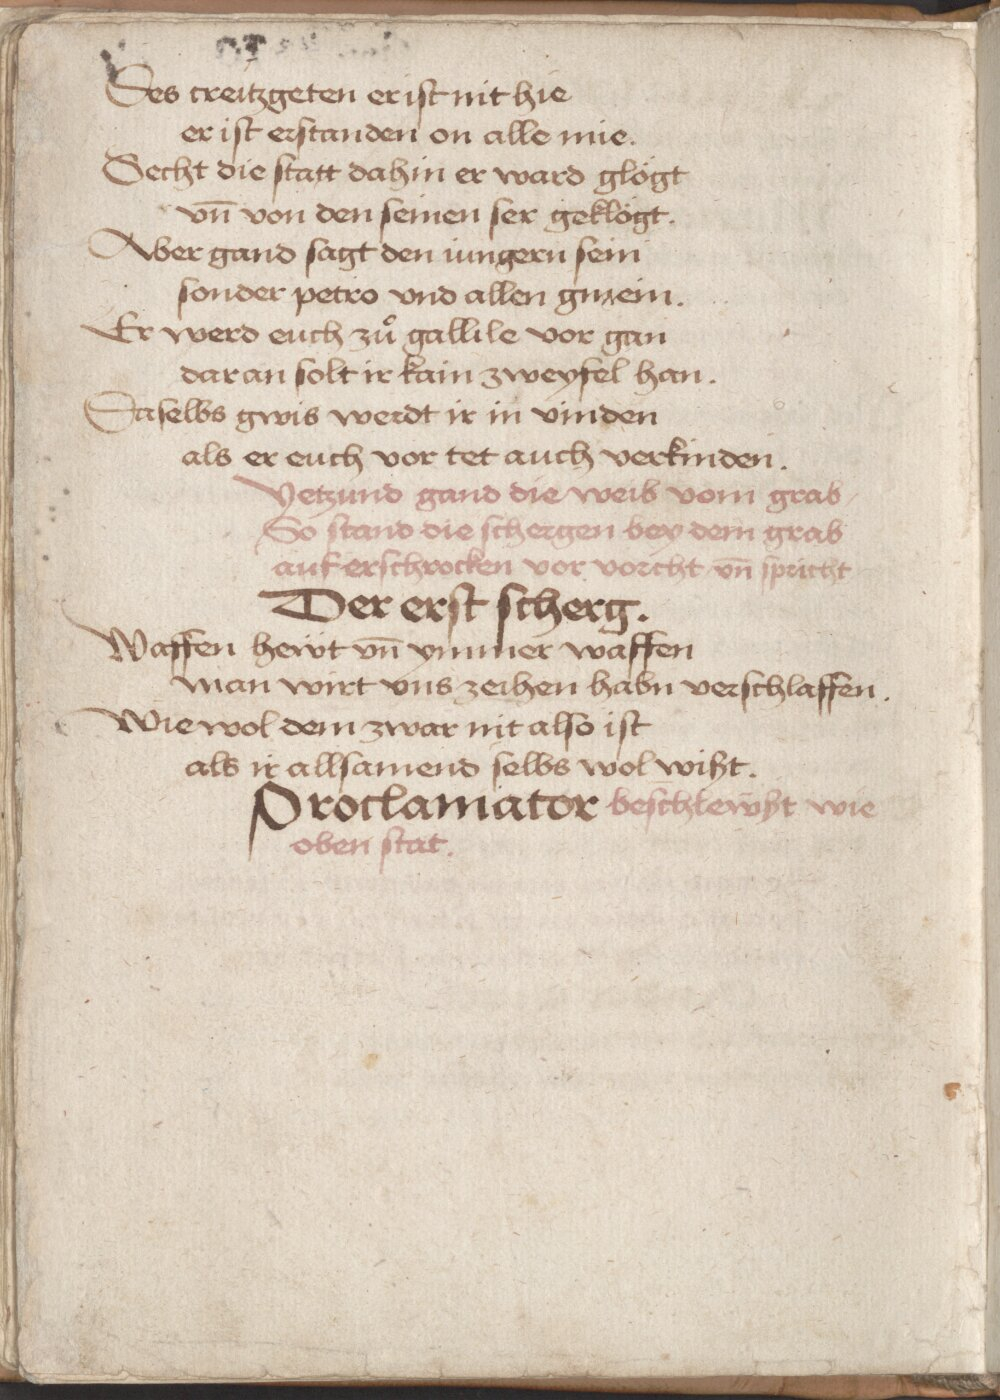 Des creitzgeten er ist nit hie
er ist erstanden on alle mie.
Secht die statt dahin er ward glögt
vn̄ von den seinen ser geklögt.
Aber gand sagt den iungern sein
sonder petro vnd allen gmein.
Er werd euch zů gallile vor gan
dar an solt ir kain zweyfel han.
Daselbs gwis werdt ir in vinden
als er euch vor tet auch verkinden.
Yetzund gand die weib vom grab/
So stand die schergen bey dem grab
auf erschrocken vor vorcht vn̄ spricht
Der erst scherg.
Waffen hewt vn̄ ymmer waffen
man wirt vns zeihen habn verschlaffen.
Wie wol dem zwar nit also ist
als ir allsamend selbs wol wißt.
Proclamator beschlewßt wie
oben stat.